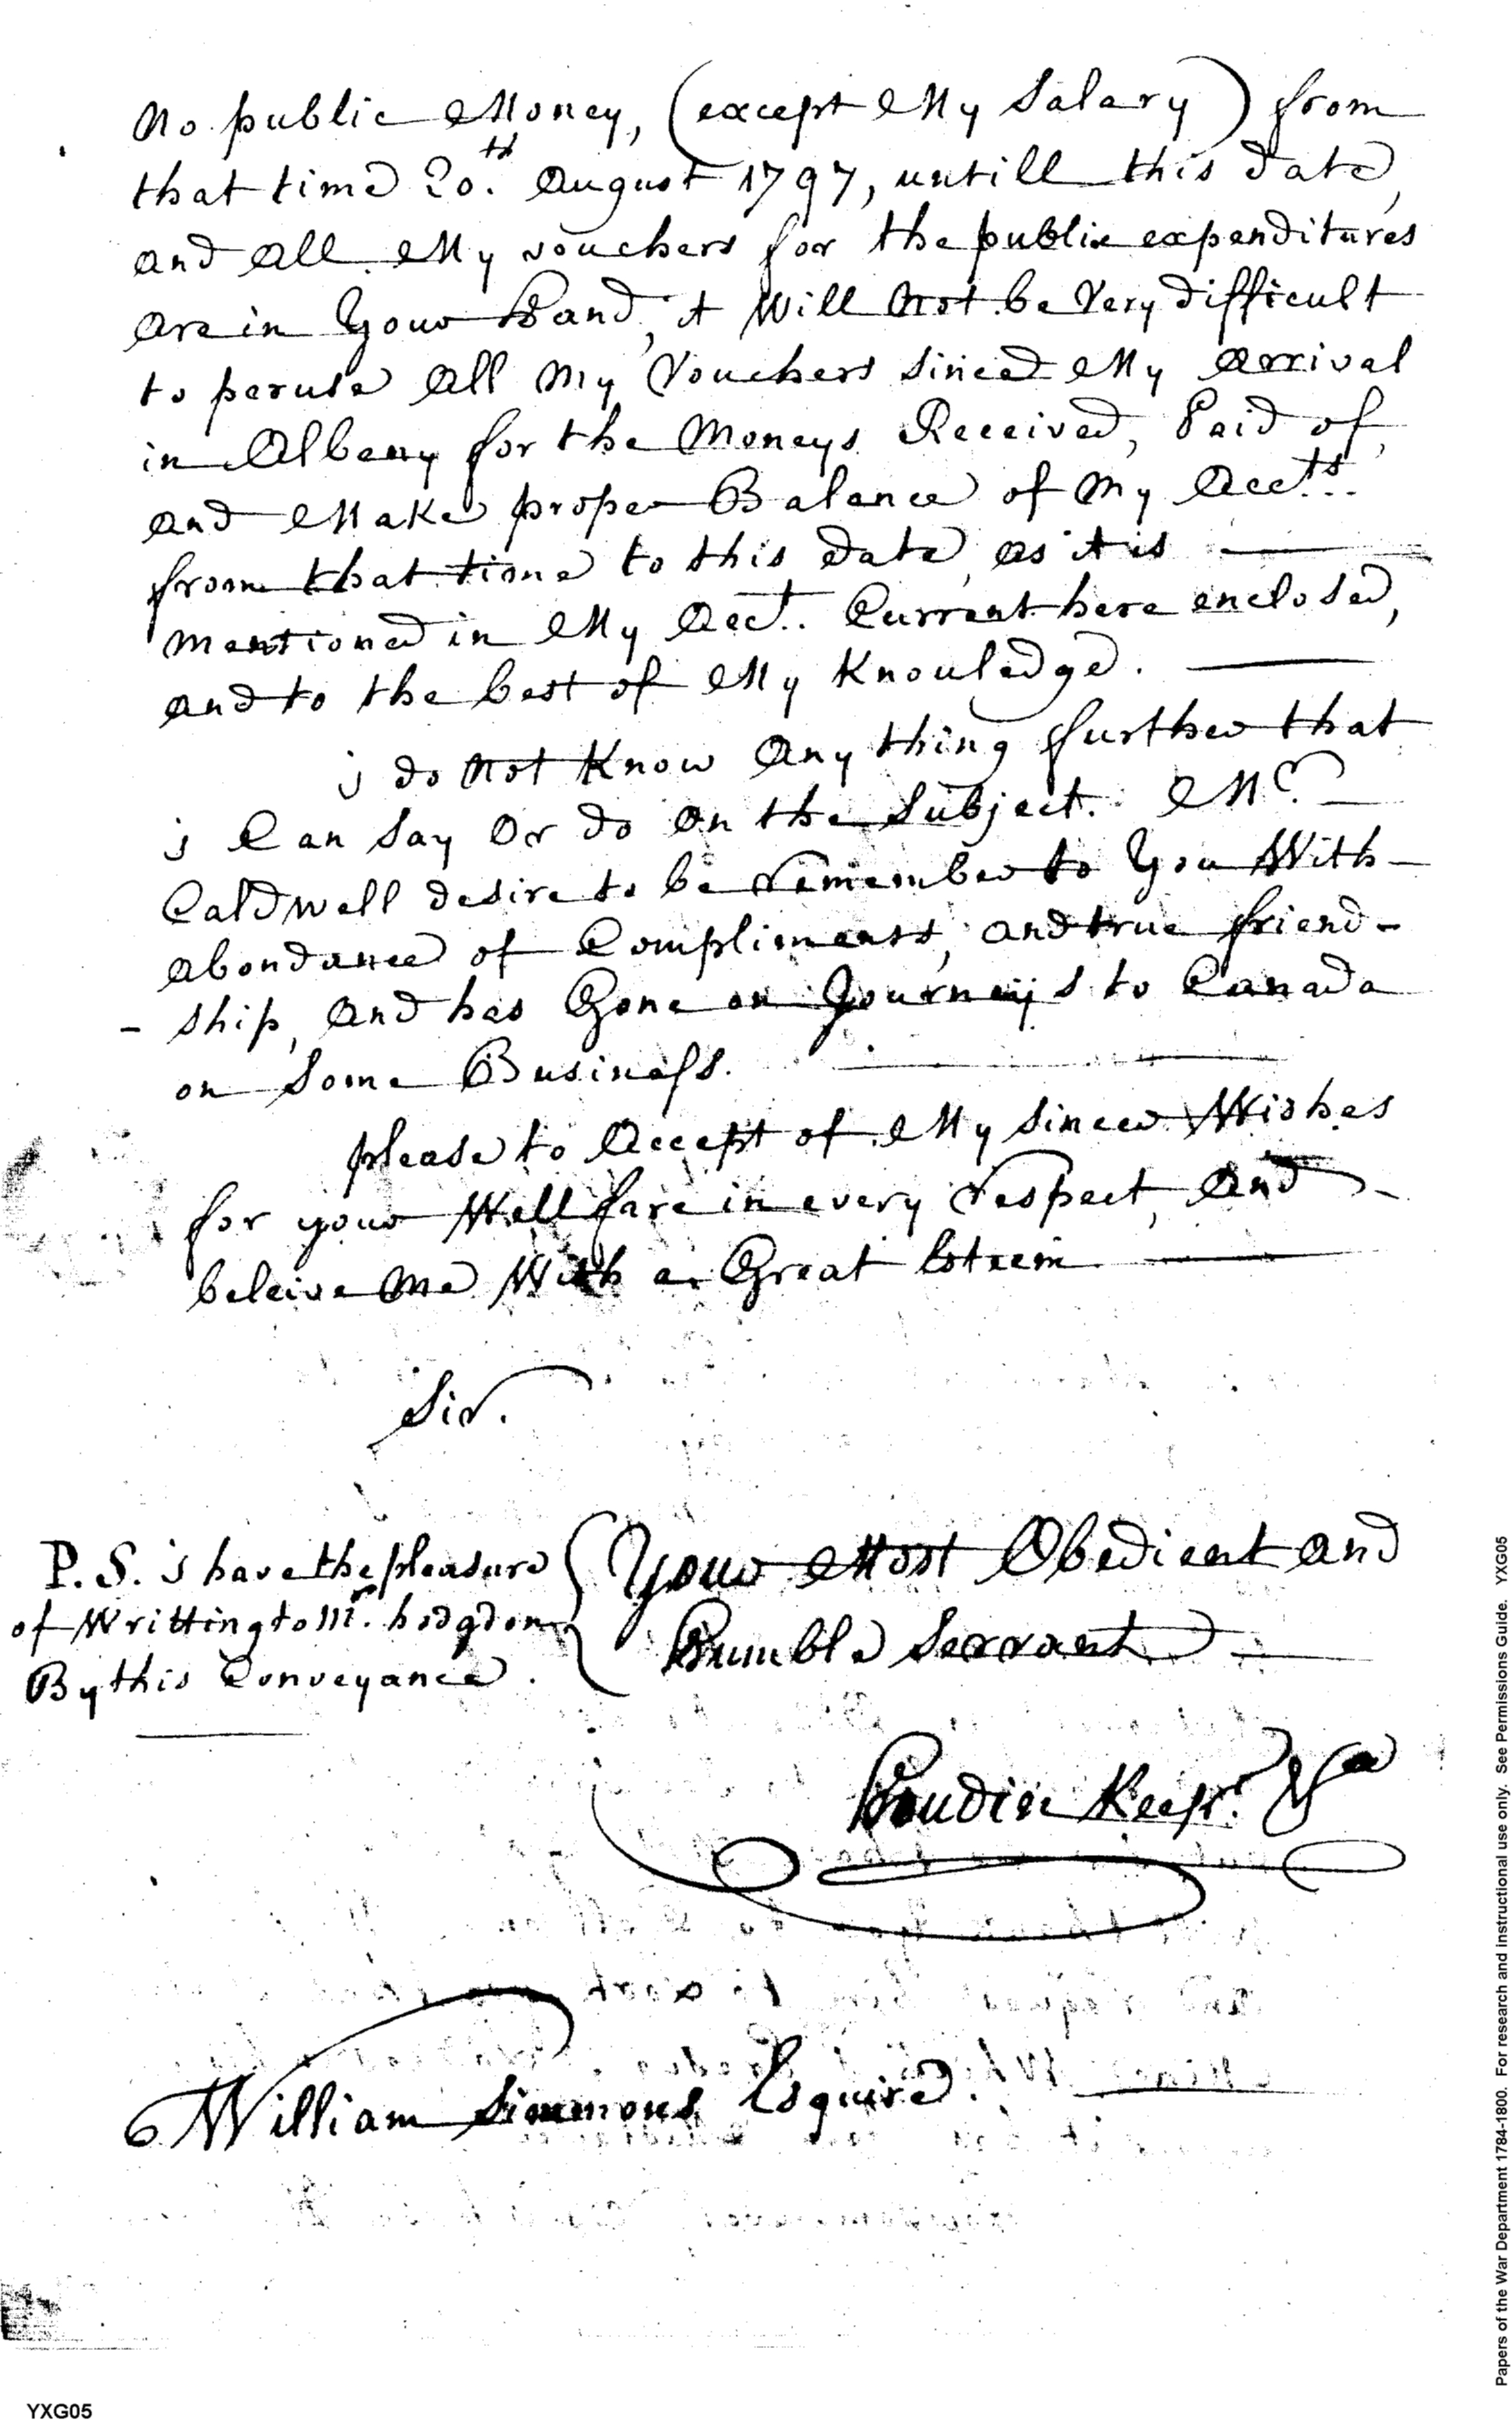 No public Money, (except My Salary) from
that time 20.th August 1797, untill this date,
and all My vouchers for the public expenditures
are in Your Hand, it Will Not be Very difficult
to peruse All my Vouchers Sinced My arrival
in Albany for the Moneys Received, Paid of,
and Make proper Balance of My Acc.ts
from that time to this date, as it is
mentioned in My Acc.t Current here enclosed,
and to the best of My Knowledge.
j do Not Know Any thing further that
j Can Say Or do on the Subject. Mr.
Caldwell desire to be remember to You With
abondance of Compliments, and true friend-
- ship, And has Gone on Journeys to Canada
on Some Business.
please to Accept of My Sincer Wishes
for your Wellfare in every respect, And
beleive Me With a Great Esteem
Sir.
P.S. j have the pleasure
of Writting to Mr. hodgdon
By this Conveyance.
Your Most Obedient and
Humble Servant
Gaudin Keepr.
William Simmons Esquire.
Papers of the War Department 1784-1800. For research and instructional use only. See Permissions Guide. YXG05
YXG05